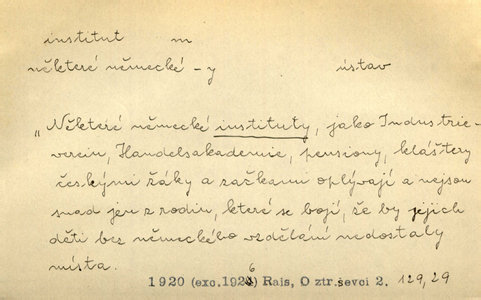 institut m
některé německé -y ústav
„Některé německé instituty, jako Industrie-
verein, Handelsakademie, pensiony, kláštery
českými žáky a začkami oplývají a nejsou
snad jen z rodin, které se bojí, že by jejich
děti bez německého vzdělání nedostaly
místa.
1920 (exc. 1926) Rais, O ztr. ševci 2. 129,29